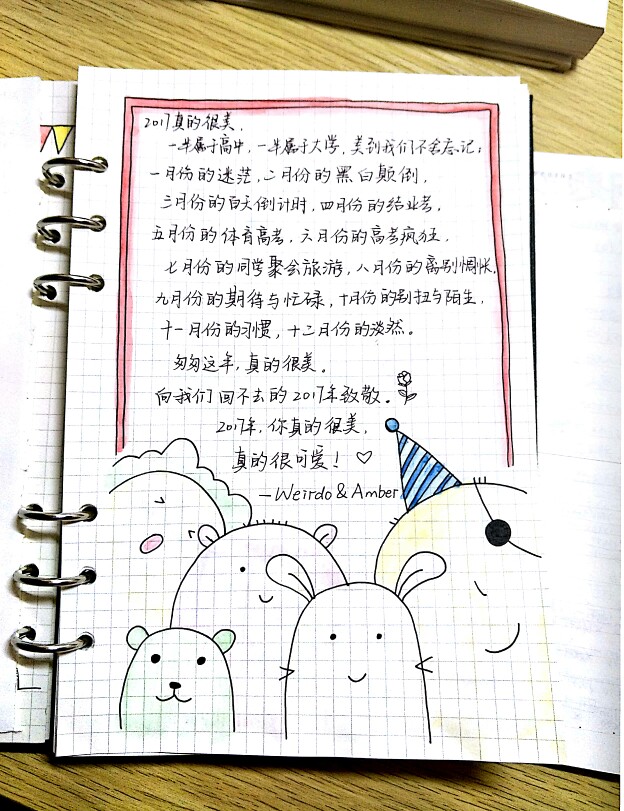 2017真的很美，
一半属于高中，一半属于大学，美到我们不舍忘记；
一月份的迷茫，二月份的黑白颠倒，
三月份的百天倒计时，四月份的结业考，
五月份的体育高考，六月份的高考疯狂，
七月份的同学聚会旅游，八月份的离别惆怅，
九月份的期待与忙碌，十月份的别扭与陌生，
十一月份的习惯，十二月份的淡然。
匆匆这年，真的很美。
向我们回不去的2017年致敬。
2017年，你真的很美，
真的很可爱！♡
—Weirdo & Amber